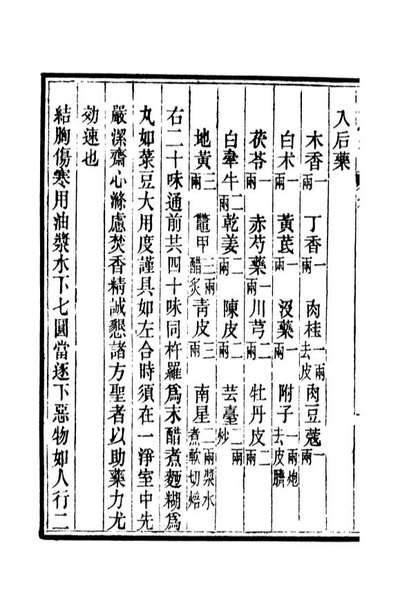 入后藥
木香一兩 丁香一兩 肉桂一兩去皮 肉豆蔻一兩
白术一兩 黃芪一兩 沒藥一兩 附子一兩炮去皮臍
茯苓一兩 赤芍藥一兩 川芎二兩 牡丹皮二兩
白牽牛二兩 乾姜二兩 陳皮二兩 芸薹二兩炒
地黃三兩 鼈甲三兩醋炙 青皮三兩 南星二兩漿水煮軟切焙
右二十味通前共四十味同杵羅爲末醋煮麵糊爲
丸如菉豆大用度謹具如左合時須在一淨室中先
嚴潔齋心滌慮焚香精誠懇諸方聖者以助藥力尤
効速也
結胸傷寒用油漿水下七圓當逐下惡物如人行二